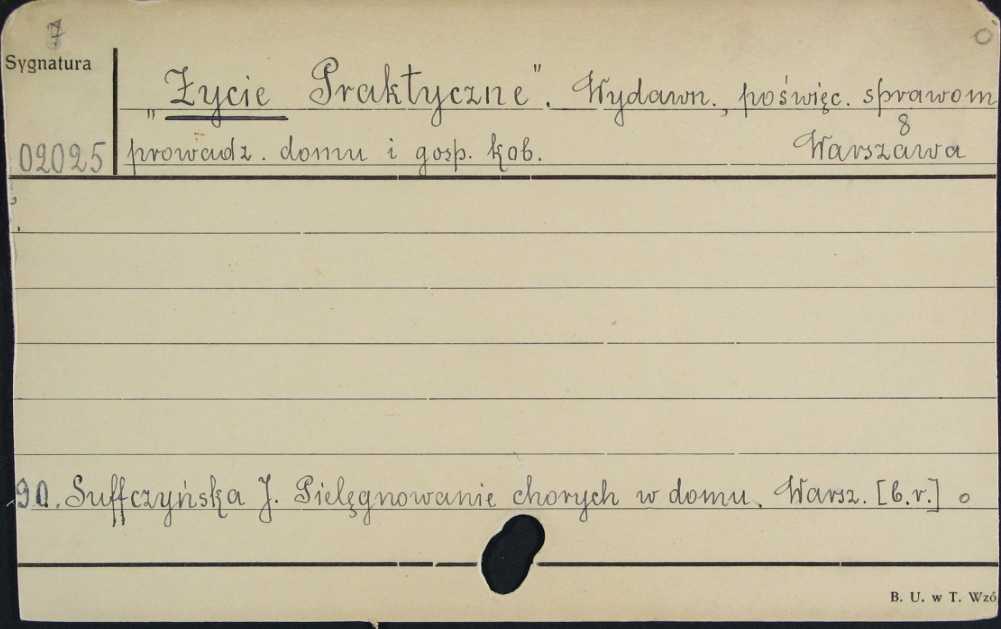 7
Sygnatura
„Życie Praktyczne". Wydawn., poświęc. sprawom
8
02025 prowadz. domu i gosp. kob. Warszawa
90. Suffczyńska J. Pielęgnowanie chorych w domu. Warsz. [b.r.] o
B. U. w T. Wzó